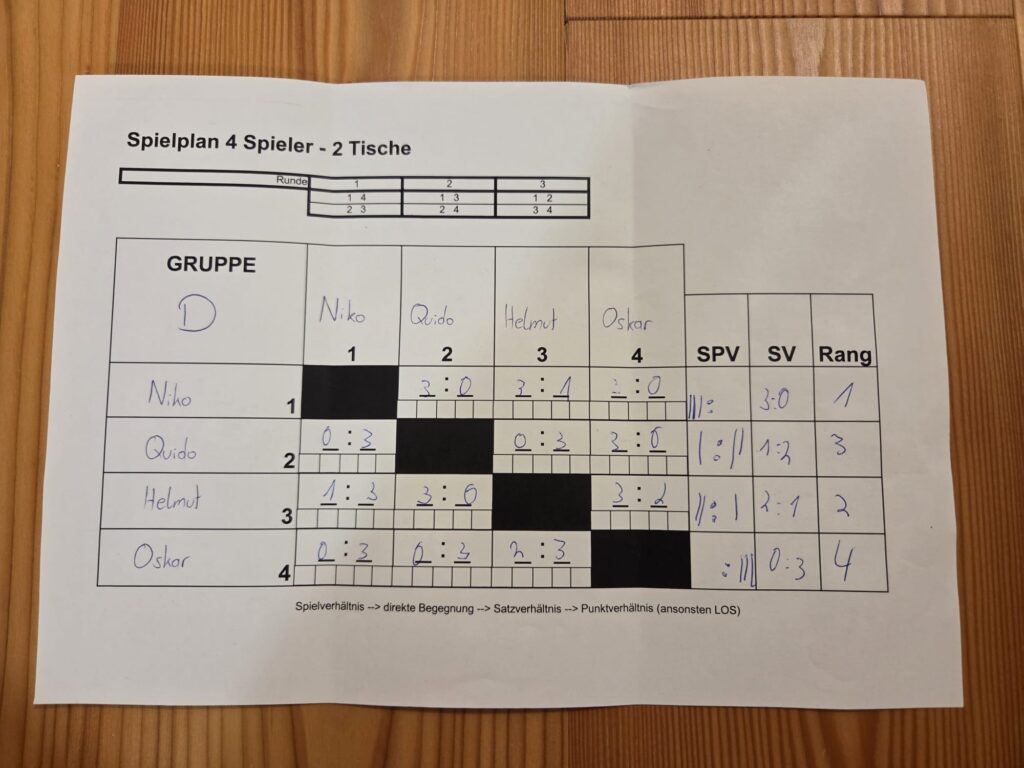 Spielplan 4 Spieler - 2 Tische
Runde 1 2 3
1 4 1 3 1 2
2 3 2 4 3 4
GRUPPE
D Niko Quido Helmut Oskar
1 2 3 4 SPV SV Rang
Niko 1 3 : 0 3 : 1 : 0 |||: 3:0 1
Quido 2 0 : 3 0 : 3 3 : 0 |:|| 1:2 3
Helmut 3 1 : 3 3 : 0 3 : 2 ||:| 2:1 2
Oskar 4 0 : 3 0 : 3 2 : 3 :||| 0:3 4
Spielverhältnis --> direkte Begegnung --> Satzverhältnis --> Punktverhältnis (ansonsten LOS)